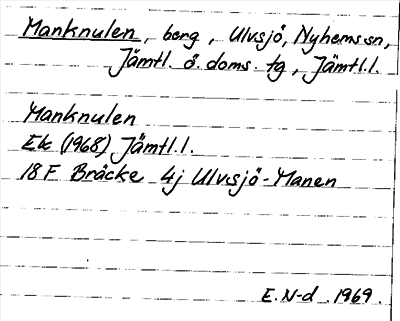 Manknulen, berg, Ulvsjö, Nyhems sn,
Jämtl. ö. doms. tg, Jämtl.l.
Manknulen
Ek (1968) Jämtl.l.
18 F Bräcke 4j Ulvsjö-Manen
E.N-d. 1969.